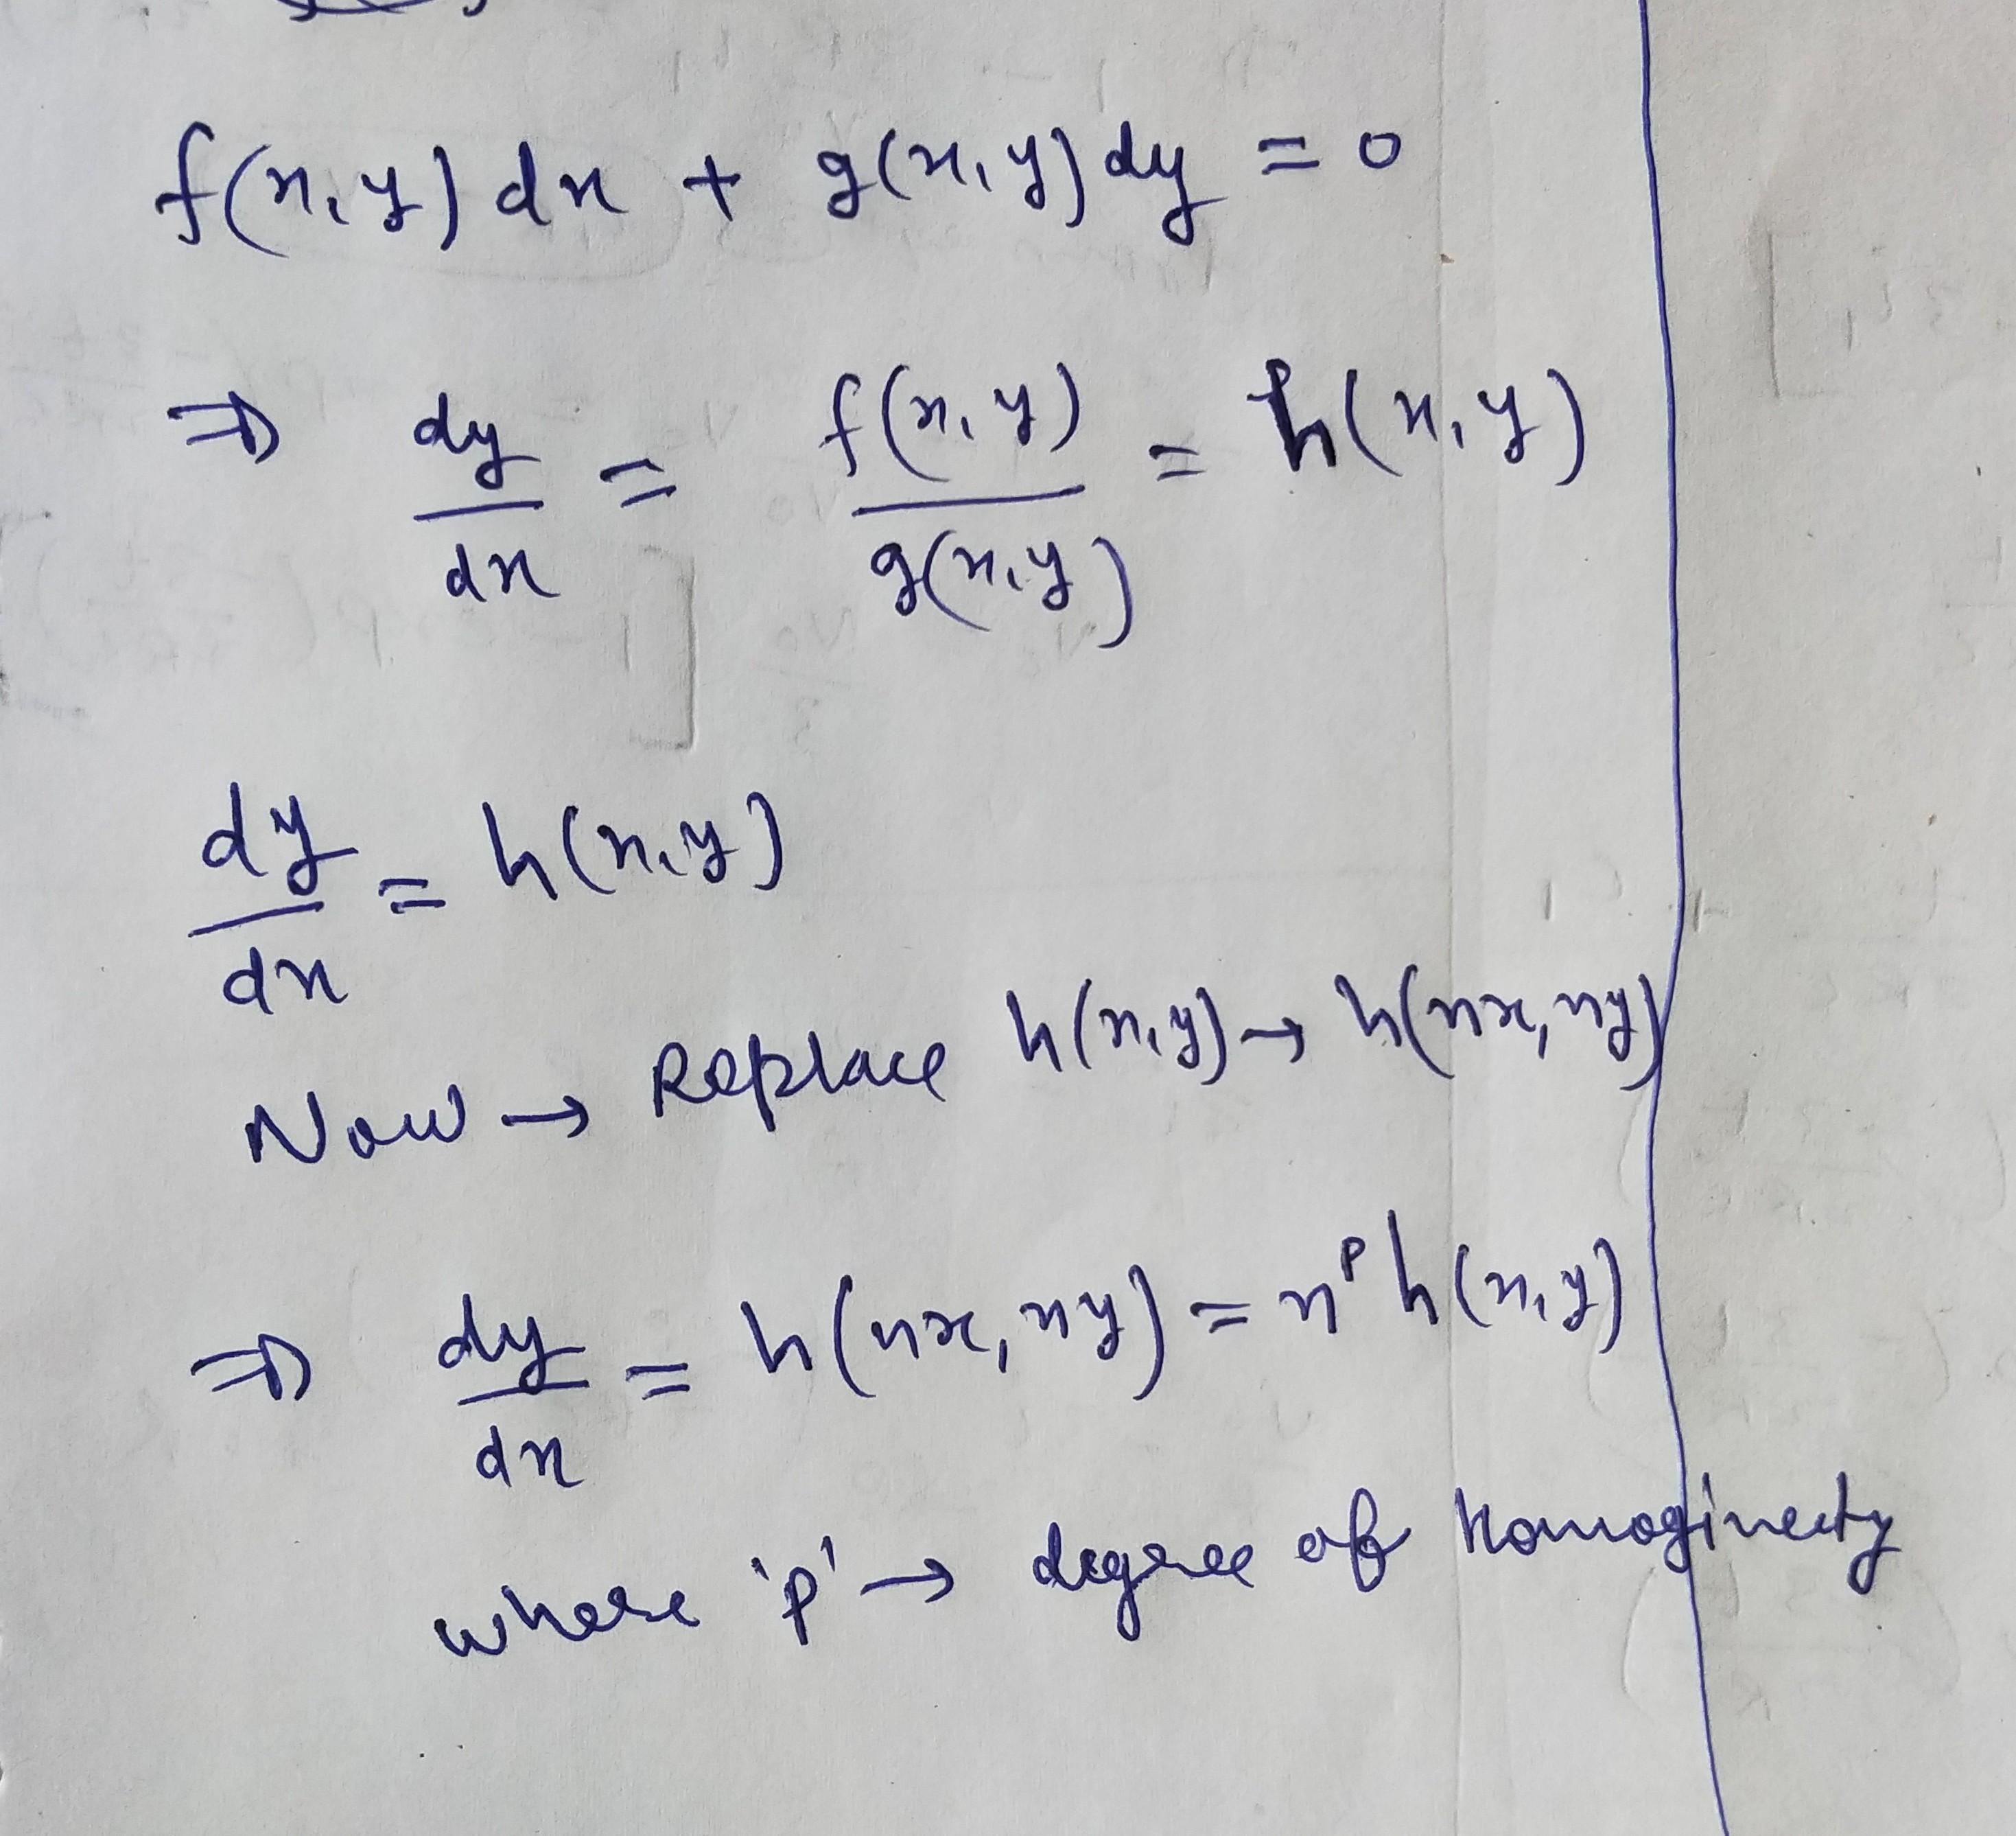 f(x,y) dx + g(x,y) dy = 0
⇒ dy/dx = f(x,y)/g(x,y) = h(x,y)
dy/dx = h(x,y)
Now → Replace h(x,y) → h(nx, ny)
⇒ dy/dx = h(nx, ny) = n^p h(x,y)
where 'p' → degree of homoginecty